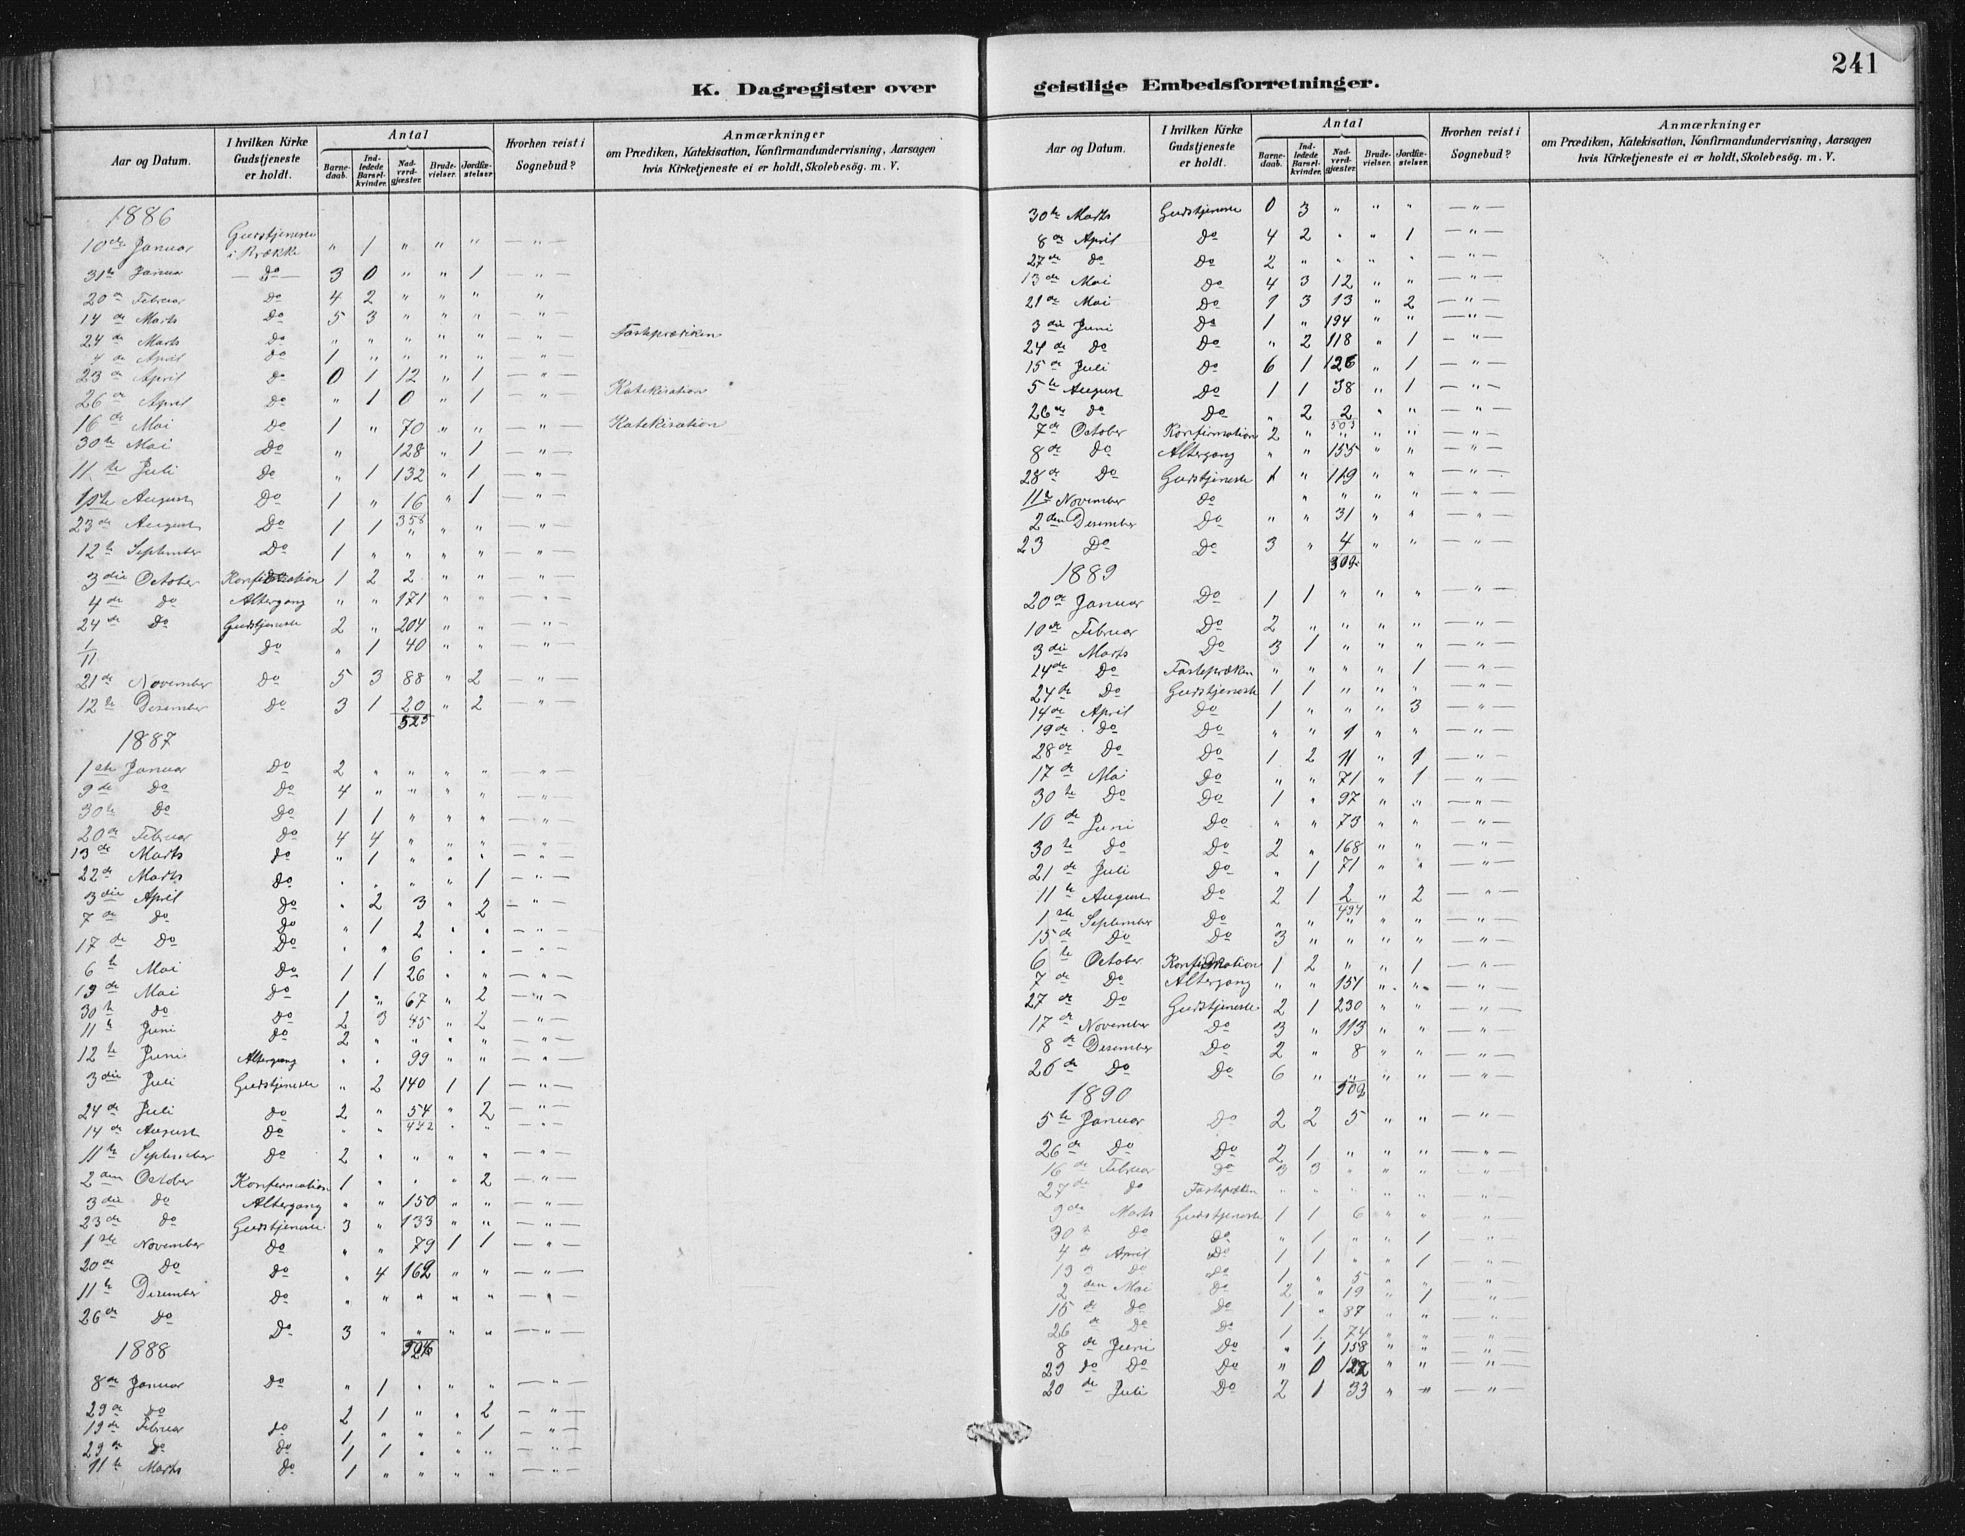 K. Dagregister over
Aar og Datum. | I hvilken Kirke Gudstjeneste er holdt. | Antal | Barnedaab. | Indledede Barselkvinder. | Nadverdgjæster. | Brudevielser. | Jordfæstelser. | Hvorhen reist i Sognebud? | Anmærkninger om Prædiken, Katekisation, Konfirmandundervisning, Aarsagen hvis Kirketjeneste ei er holdt, Skolebesög. m. V.
1886
10de Januar Gudstjeneste i " 1 " " " — " —
31te Januar — Do — 3 0 " " 1 — " —
20de Februar Do 4 2 " " " "
14de Marts Do 5 3 " " " — " —
24de Marts Do " " " " " — " — Fasteprædiken
4de April Do 1 " " " " — " —
23de April Do 0 1 12 " 1 — " —
26de April Do " 1 0 " 1 — " — Katekisation
16de Mai Do 1 " 70 " " — " — Katekisation
30te Mai Do " 128 " 1 — " —
11te Juli Do " 1 132 " 1 — " —
1ste August Do 1 " 16 " 1 — " —
358
23de August Do 1 1 " " " — " —
12te September Do 1 " " " " — " —
3die October Konfirmation 1 2 2 " " — " —
4de Do Altergang " " 171 " " — " —
24de Do Gudstjeneste 2 " 204 " " — " —
1/11 Do " 1 40 " " — " —
21de November Do 5 3 88 " 2 — " —
12te Desember Do 3 1 20 " 2 — " —
525
1887
1ste Januar Do 2 " " " " — " —
9de Do Do 4 " " " " — " —
30te Do Do 1 1 " " " — " —
20de Februar Do 4 4 " " " — " —
13de Marts Do " 1 " " " — " —
22de Marts Do " " " " 1 — " —
3die April Do " 2 3 " 2 — " —
7de Do Do " 1 2 " " — " —
17de Do Do " " 6 " " — " —
6te Mai Do 1 1 26 " " — " —
19de Mai Do 1 " 67 " 2 — " —
30te Do Do 2 3 45 " 2 — " —
11te Juni Do 2 " " " " — " —
12te Juni Altergang " " 99 " " — " —
3die Juli Gudstjeneste " 2 140 1 1 — " —
24de Juli Do 2 " 54 " 2 — " —
442
14de August Do " " " " — " —
11te September Do 2 " " " " — " —
2den October Konfirmation 1 " " " 2 — " —
3die Do Altergang " " 150 " " — " —
23de Do Gudstjeneste 3 " 133 " " — " —
1ste November Do " " 79 1 1 — " —
20de Do Do " 4 162 " " — " —
11te Desember Do " " " " " — " —
26de Do Do 3 " " " " — " —
1888
8de Januar Do " 1 " " " — " —
29de Do 2 1 " " 2 — " —
19de Februar Do 1 " " " 1 — " —
29de Do Do 1 1 " " " — " —
11te Marts Do 1 " " " " — " —
241
geistlige Embedsforretninger.
Aar og Datum. | I hvilken Kirke Gudstjeneste er holdt. | Antal | Barnedaab. | Indledede Barselkvinder. | Nadverdgjæster. | Brudevielser. | Jordfæstelser. | Hvorhen reist i Sognebud? | Anmærkninger om Prædiken, Katekisation, Konfirmandundervisning, Aarsagen hvis Kirketjeneste ei er holdt, Skolebesög. m. V.
30te Marts Gudstjeneste 0 3 " " " — " —
8de April Do 4 2 " " 1 — " —
27de Do Do 2 " " " " — " —
13de Mai Do 4 3 12 " " — " —
21de Mai Do 1 3 13 " 2 — " —
3die Juni Do 1 " 194 " " — " —
24de Do Do " 2 118 " 1 — " —
15de Juli Do 6 1 126 " 1 — " —
5te August Do 1 1 38 " 1 — " —
26de Do Do " 2 2 " " — " —
503
7de October Konfirmation 2 " " " " — " —
8de Do Altergang " " 155 " " — " —
28de Do Gudstjeneste 1 " 119 " " — " —
11te November Do " " " " — " —
2den Desember Do " " 31 " " — " —
23 Do Do 3 " 4 " " — " —
309
1889
20de Januar Do 1 1 " " " — " —
10de Februar Do 2 " " " " — " —
3die Marts Do 3 1 " " " — " —
14de Do Fastepræken " " " " 1 — " —
24de Do Gudstjeneste 1 1 " " " — " —
14de April Do 1 " " " 3 — " —
19de Do Do " " 1 " " — " —
28de Do Do 1 2 11 " 1 — " —
17de Mai Do " " 71 " 1 — " —
30te Do Do 1 " 97 " " — " —
10de Juni Do " " 73 " " — " —
30te Do Do 2 " 168 " " — " —
21de Juli Do " 1 71 " " — " —
11te August Do 2 1 2 " 2 — " —
494
1ste September Do " " " " " — " —
15de Do Do 3 " " " " — " —
6te October Konfirmation 1 2 " " 1 — " —
7de Do Altergang " " 151 " " — " —
27de Do Gudstjeneste 2 1 230 " " — " —
17de November Do 3 " 113 " " — " —
8de Desember Do 2 " 8 " " — " —
26de Do Do 6 " " " " — " —
502
1890
5te Januar Do 2 2 5 " " — " —
26de Do Do 2 1 " " " — " —
16de Februar Do 3 3 " " " — " —
27de Do Fastepræken " " " " " — " —
9de Marts Gudstjeneste 1 1 6 " " — " —
30te Do Do " 1 " " 1 — " —
4de April Do 1 1 " " 1 — " —
13de Do Do 1 " 5 " " — " —
2den Mai Do 2 " 19 " 1 — " —
15de Do Do 1 " 87 " " — " —
26de Do Do 1 1 74 " " — " —
8de Juni Do " 1 158 " " — " —
29de Do Do " 0 122 " " — " —
20de Juli Do 2 1 33 " " — " —